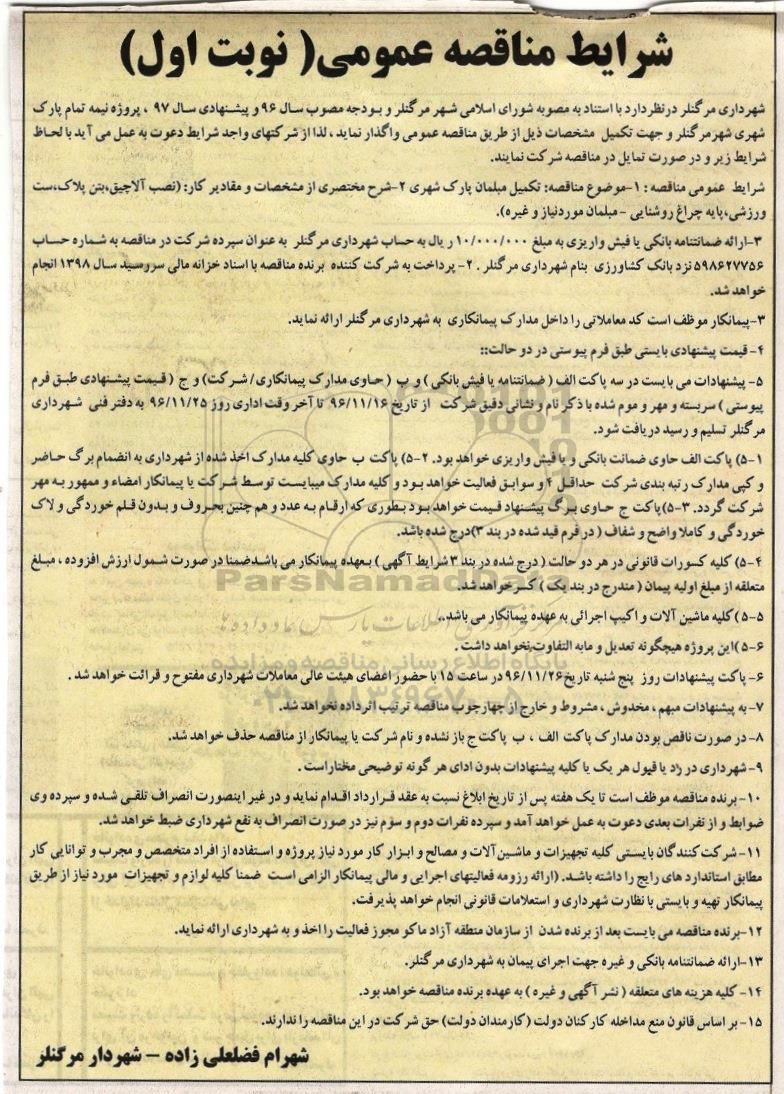 شرایط مناقصه عمومی( نوبت اول)
شهرداری مرگنلر درنظردارد با استناد به مصوبه شورای اسلامی شهر مرگنلر و بودجه مصوب سال ۹۶ و پیشنهادی سال ۹۷ ، پروژه نیمه تمام پارک
شهری شهرمرگنلر و جهت تکمیل مشخصات ذیل از طریق مناقصه عمومی واگذار نماید ، لذا از شرکتهای واجد شرایط دعوت به عمل می آید با لحاظ
شرایط زیر و در صورت تمایل در مناقصه شرکت نمایند.
شرایط عمومی مناقصه : ۱-موضوع مناقصه: تکمیل مبلمان پارک شهری ۲-شرح مختصری از مشخصات و مقادیر کار: (نصب آلاچیق،بتن پلاک،ست
ورزشی،پایه چراغ روشنایی -مبلمان موردنیاز و غیره).
۳-ارائه ضمانتنامه بانکی یا فیش واریزی به مبلغ ۱۰/۰۰۰/۰۰۰ ریال به حساب شهرداری مرگنلر به عنوان سپرده شرکت در مناقصه به شماره حساب
۵۹۸۶۲۷۷۵۶ نزد بانک کشاورزی بنام شهرداری مرگنلر . ۲- پرداخت به شرکت کننده برنده مناقصه با اسناد خزانه مالی سررسید سال ۱۳۹۸ انجام
خواهد شد.
۳-پیمانکار موظف است کد معاملاتی را داخل مدارک پیمانکاری به شهرداری مرگنلر ارائه نماید.
۴- قیمت پیشنهادی بایستی طبق فرم پیوستی در دو حالت::
۵- پیشنهادات می بایست در سه پاکت الف ( ضمانتنامه یا فیش بانکی ) و ب ( حاوی مدارک پیمانکاری/ شرکت) و ج ( قیمت پیشنهادی طبق فرم
پیوستی ) سربسته و مهر و موم شده با ذکر نام و نشانی دقیق شرکت از تاریخ ۹۶/۱۱/۱۶ تا آخر وقت اداری روز ۹۶/۱۱/۲۵ به دفتر فنی شهرداری
مرگنلر تسلیم و رسید دریافت شود.
۵-۱) پاکت الف حاوی ضمانت بانکی و یا فیش واریزی خواهد بود. ۵-۲) پاکت ب حاوی کلیه مدارک اخذ شده از شهرداری به انضمام برگ حاضر
و کپی مدارک رتبه بندی شرکت حداقل ۴ و سوابق فعالیت خواهد بود و کلیه مدارک میبایست توسط شرکت یا پیمانکار امضاء و ممهور به مهر
شرکت گردد. ۵-۳) پاکت ج حاوی برگ پیشنهاد قیمت خواهد بود بطوری که ارقام به عدد و هم چنین بحروف و بدون قلم خوردگی و لاک
خوردگی و کاملا واضح و شفاف ( در فرم قید شده در بند ۳)درج شده باشد.
۵-۴) کلیه کسورات قانونی در هر دو حالت ( درج شده در بند ۳ شرایط آگهی ) بعهده پیمانکار می باشدضمنا در صورت شمول ارزش افزوده ، مبلغ
متعلقه از مبلغ اولیه پیمان ( مندرج در بند یک ) کسرخواهد شد.
۵-۵) کلیه ماشین آلات و اکیپ اجرائی به عهده پیمانکار می باشد.،
۵-۶)این پروژه هیچگونه تعدیل و مابه التفاوت،نخواهد داشت .
۶- پاکت پیشنهادات روز پنج شنبه تاریخ۹۶/۱۱/۲۶ در ساعت ۱۵ با حضور اعضای هیئت عالی معاملات شهرداری مفتوح و قرائت خواهد شد .
۷- به پیشنهادات مبهم ، مخدوش ، مشروط و خارج از چهارچوب مناقصه ترتیب اثرداده نخواهد شد.
۸- در صورت ناقص بودن مدارک پاکت الف ، ب پاکت ج باز نشده و نام شرکت یا پیمانکار از مناقصه حذف خواهد شد.
۹- شهرداری در راد یا قبول هر یک یا کلیه پیشنهادات بدون ادای هر گونه توضیحی مختاراست .
۱۰- برنده مناقصه موظف است تا یک هفته پس از تاریخ ابلاغ نسبت به عقد قرارداد اقدام نماید و در غیر اینصورت انصراف تلقی شده و سپرده وی
ضوابط و از نفرات بعدی دعوت به عمل خواهد آمد و سپرده نفرات دوم و سوم نیز در صورت انصراف به نفع شهرداری ضبط خواهد شد.
۱۱- شرکت کنندگان بایستی کلیه تجهیزات و ماشین آلات و مصالح و ابزار کار مورد نیاز پروژه و استفاده از افراد متخصص و مجرب و توانایی کار
مطابق استاندارد های رایج را داشته باشد. (ارائه رزومه فعالیتهای اجرایی و مالی پیمانکار الزامی است ضمنا کلیه لوازم و تجهیزات مورد نیاز از طریق
پیمانکار تهیه و بایستی با نظارت شهرداری و استعلامات قانونی انجام خواهد پذیرفت.
۱۲-برنده مناقصه می بایست بعد از برنده شدن از سازمان منطقه آزاد ماکو مجوز فعالیت را اخذ و به شهرداری ارائه نماید.
۱۳-ارائه ضمانتنامه بانکی و غیره جهت اجرای پیمان به شهرداری مرگنلر.
۱۴- کلیه هزینه های متعلقه ( نشر آگهی و غیره ) به عهده برنده مناقصه خواهد بود.
۱۵- بر اساس قانون منع مداخله کارکنان دولت (کارمندان دولت) حق شرکت در این مناقصه را ندارند.
شهرام فضلعلی زاده – شهردار مرگنلر
ParsNamadData
پایگاه اطلاع رسانی مناقصه و مزایده